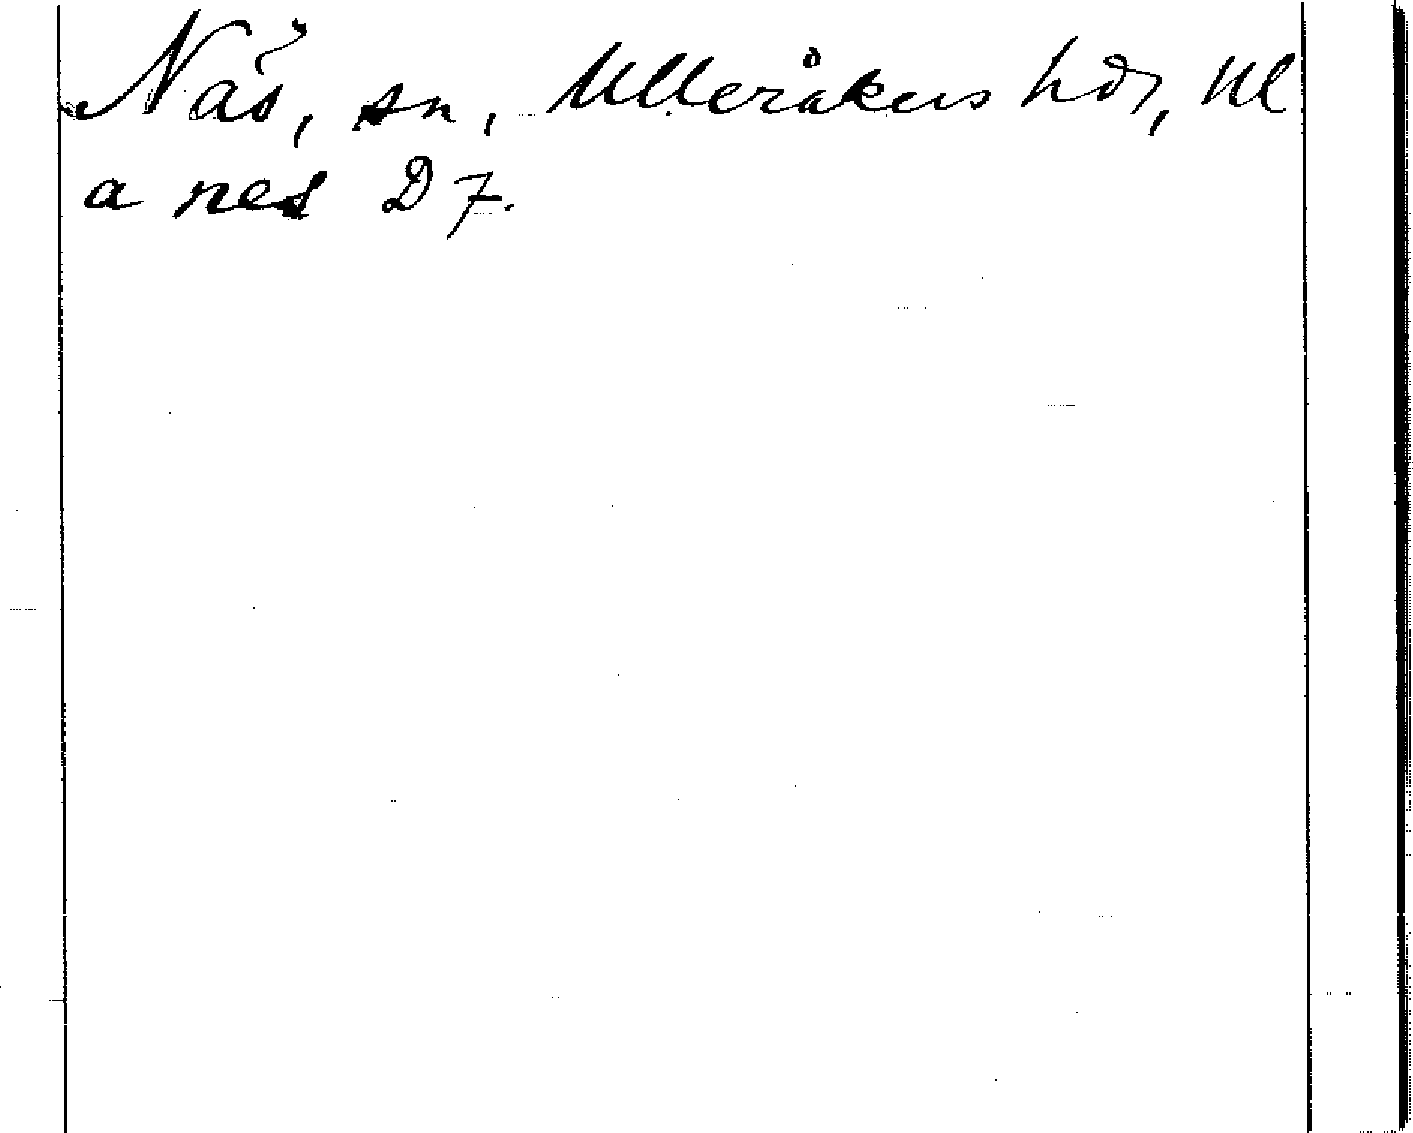 Näs, sn, Ulleråkers hdr, Ul
a nes D 7.